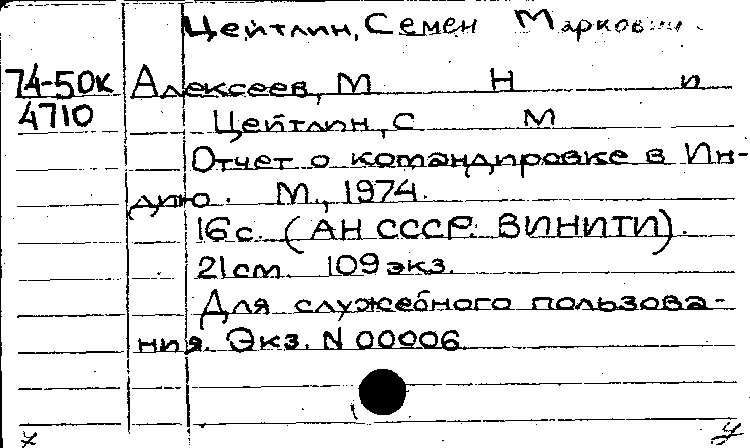 Цейтлин, Семен Маркович
74-50к Алексеев, М Н и
4710 Цейтлин, С М
Отчет о командировке в Ин-
дию. М., 1974.
16 с. (АН СССР. ВИНИТИ).
21 см. 109 экз.
Для служебного пользова-
ния. Экз. N 00006